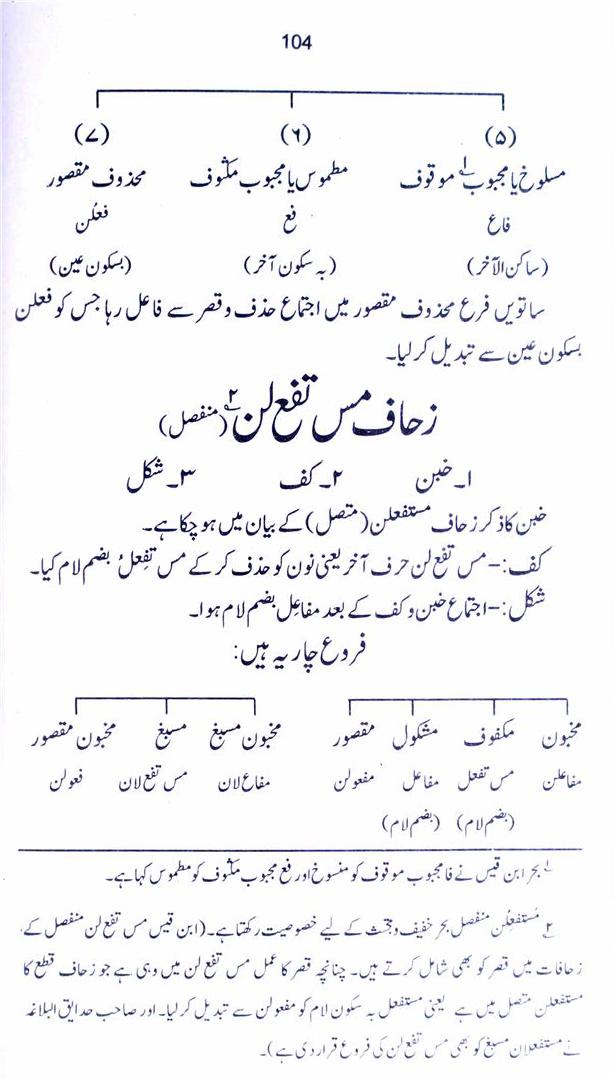 104
(۵) (۶) (۷)
مسلوخ یا مجبوب۱؎ موقوف مطموس یا مجبوب مکثوف محذوف مقصور
فاع فع فعلن
(ساکن الآخر) (بہ سکون آخر) (بسکون عین)
ساتویں فرع محذوف مقصور میں اجتماع حذف و قصر سے فاعل رہا جس کو فعلن
بسکون عین سے تبدیل کر لیا۔
زحاف مس تفع لن۲؎ (منفصل)
۱۔ خبن ۲۔ کف ۳۔ شکل
خبن کا ذکر زحاف مستفعلن (متصل) کے بیان میں ہو چکا ہے۔
کف:- مس تفع لن حرف آخر یعنی نون کو حذف کر کے مس تفِعلُ بضم لام کیا۔
شکل:- اجتماع خبن و کف کے بعد مفاعِل بضم لام ہوا۔
فروع چار یہ ہیں:
مخبون مکفوف مشکول مقصور مخبون مسبغ مسبغ مخبون مقصور
مفاعلن مس تفعل مفاعل مفعولن مفاع لان مس تفع لان فعولن
(بضم لام) (بضم لام)
۱؎ بحر ابن قیس نے فا مجبوب موقوف کو منسوخ اور فع مجبوب مکثوف کو مطموس کہا ہے۔
۲؎ مُستفعِلُن منفصل بحر خفیف و مجتث کے لیے خصوصیت رکھتا ہے۔ (ابن قیس مس تفع لن منفصل کے
زحافات میں قصر کو بھی شامل کرتے ہیں۔ چنانچہ قصر کا عمل مس تفع لن میں وہی ہے جو زحاف قطع کا
مستفعلن متصل میں ہے یعنی مستفعل بہ سکون لام کو مفعولن سے تبدیل کر لیا۔ اور صاحب حدایق البلاغہ
نے مستفعلان مسبغ کو بھی مس تفع لن کی فروع قرار دی ہے)۔